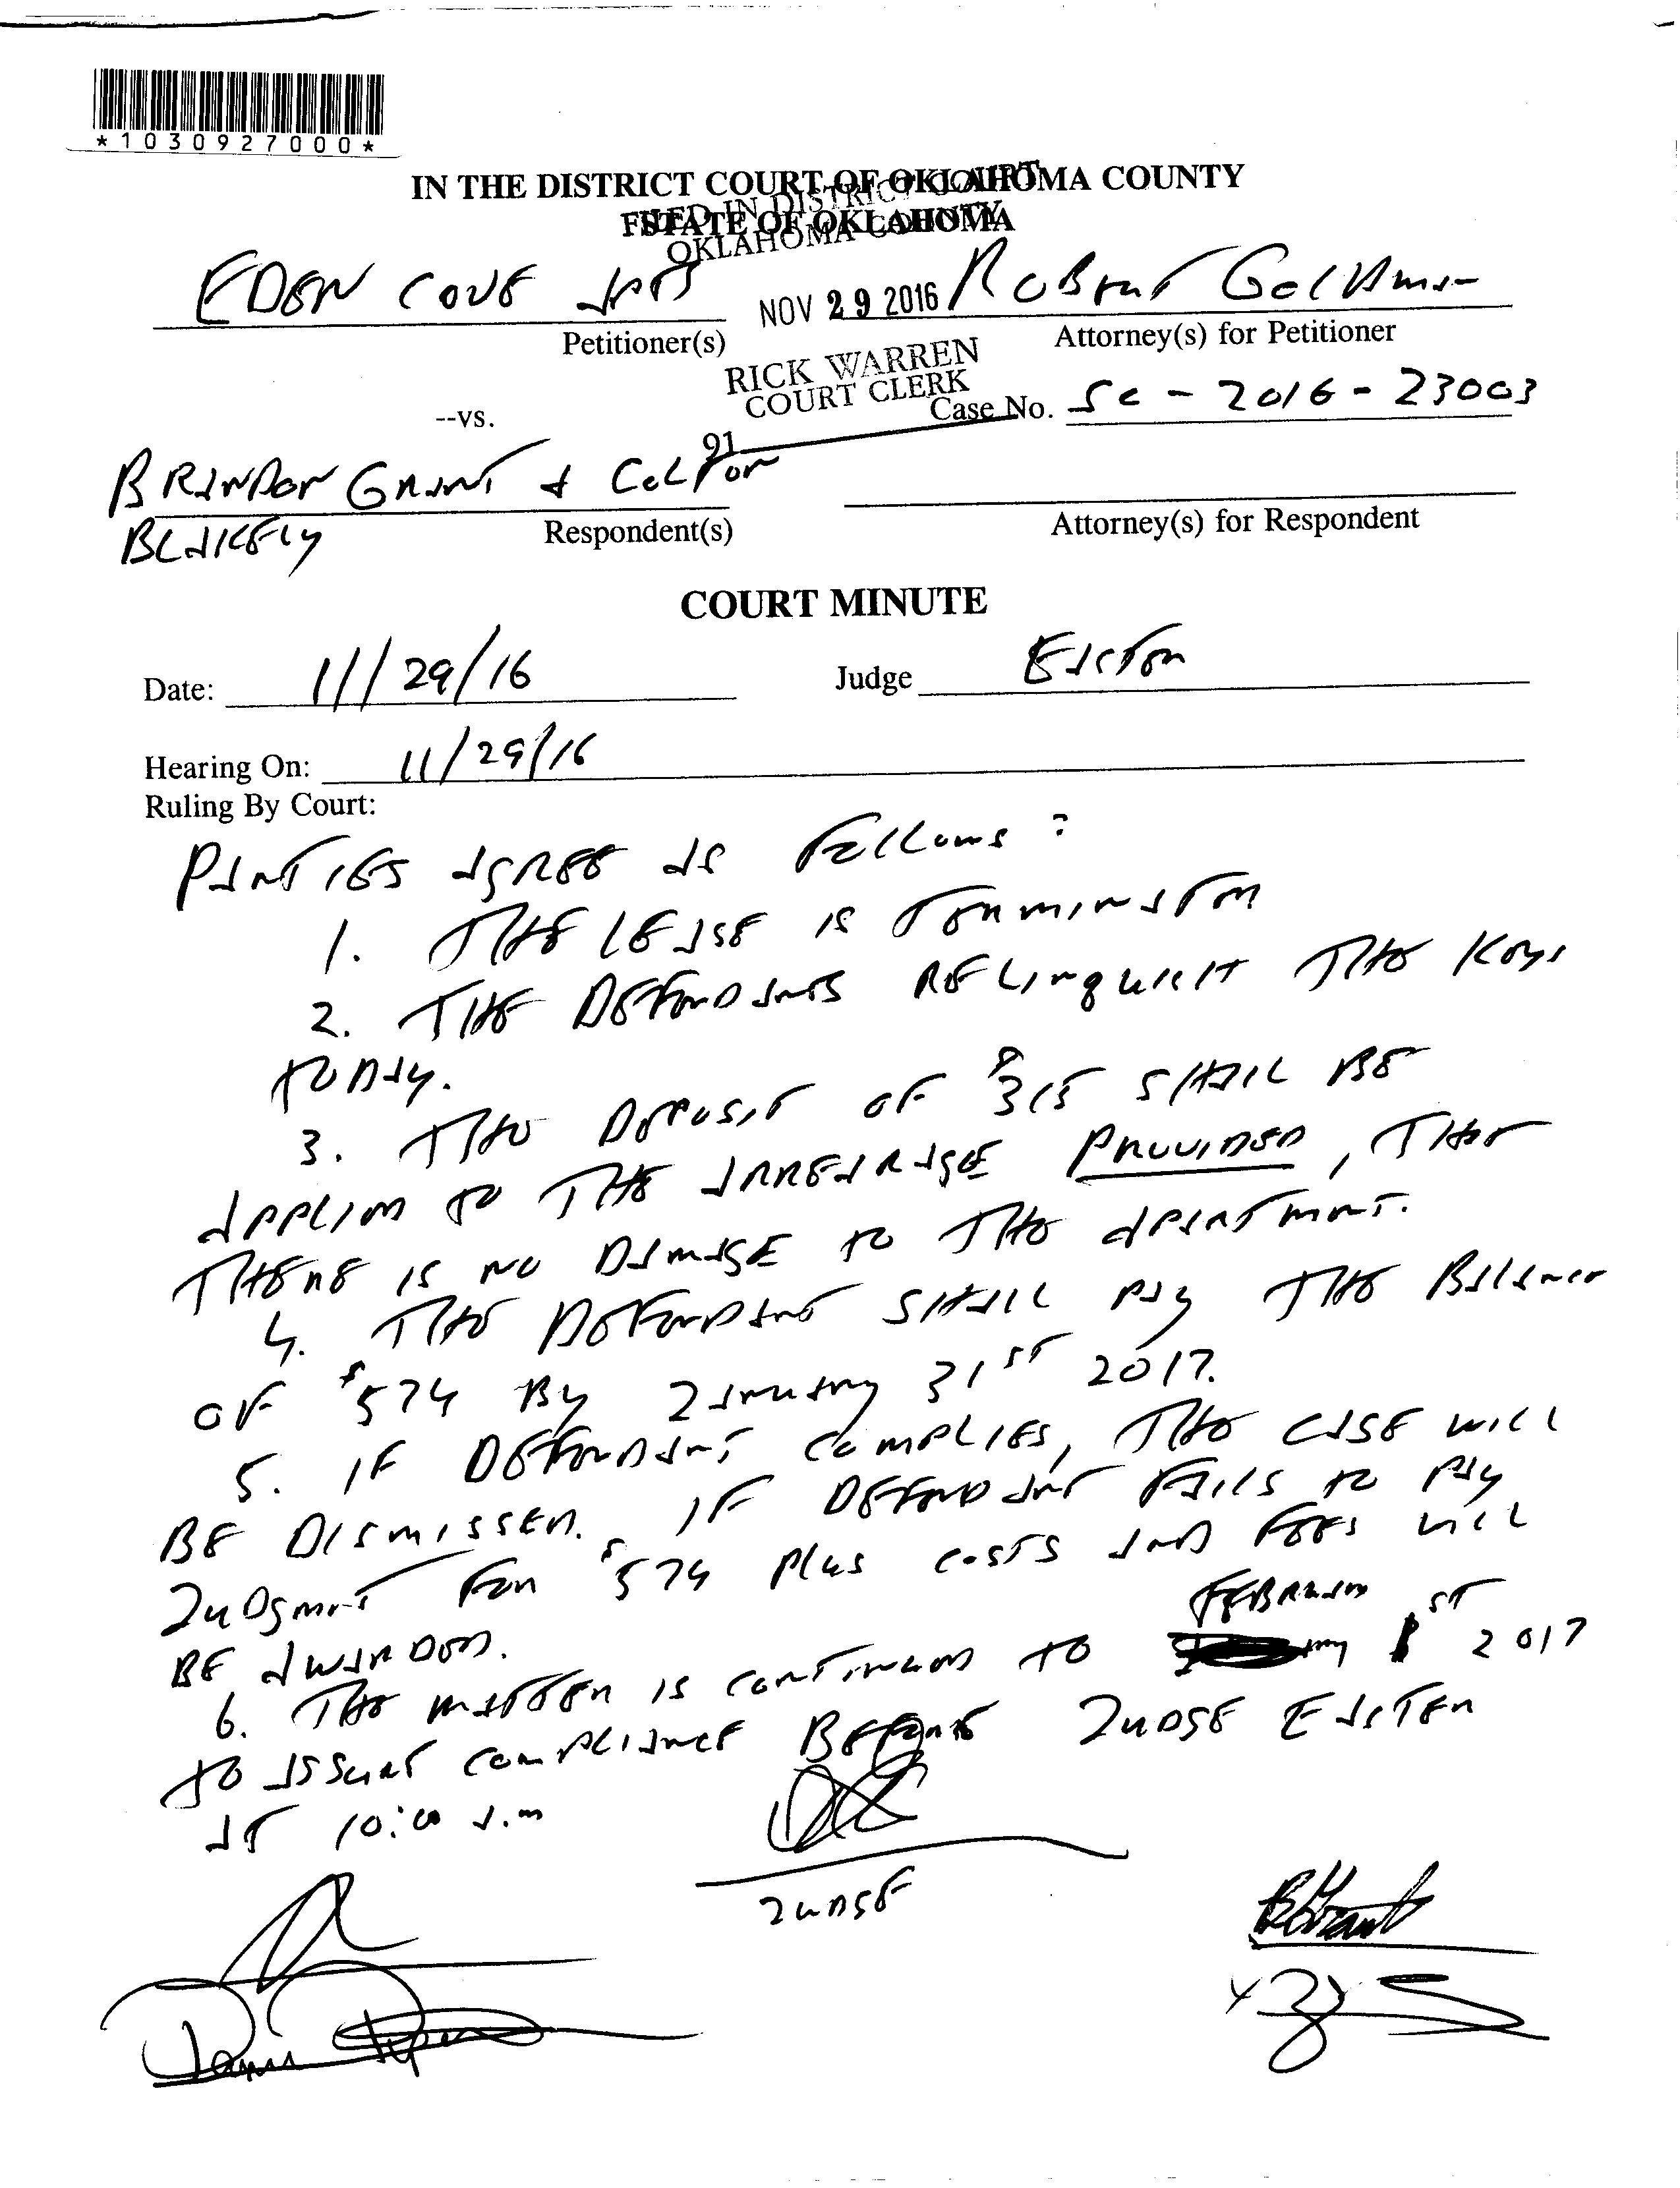 *1030927000*
IN THE DISTRICT COURT OF OKLAHOMA COUNTY
STATE OF OKLAHOMA
FILED IN DISTRICT COURT
OKLAHOMA COUNTY
NOV 29 2016
RICK WARREN
COURT CLERK
91
EDEN COVE APTS
Petitioner(s)
ROBERT GOLDMAN
Attorney(s) for Petitioner
--vs.
Case No. SC - 2016 - 23003
BRANDON GRANT & COLTON
BLAKELY
Respondent(s)
Attorney(s) for Respondent
COURT MINUTE
Date: 11/29/16
Judge EASTER
Hearing On: 11/29/16
Ruling By Court:
PARTIES AGREE AS FOLLOWS:
1. THE LEASE IS TERMINATED
2. THE DEFENDANTS RELINQUISH THE KEYS
TODAY.
3. THE DEPOSIT OF $315 SHALL BE
APPLIED TO THE ARREARAGE PROVIDED, THAT
THERE IS NO DAMAGE TO THE APARTMENT.
4. THE DEFENDANT SHALL PAY THE BALANCE
OF $574 BY JANUARY 31ST 2017.
5. IF DEFENDANT COMPLIES, THE CASE WILL
BE DISMISSED. IF DEFENDANT FAILS TO PAY
JUDGMENT FOR $574 PLUS COSTS AND FEES WILL
BE AWARDED.
6. THE MATTER IS CONTINUED TO FEBRUARY 1ST 2017
TO ASSURE COMPLIANCE BEFORE JUDGE EASTER
AT 10:00 A.M
JUDGE
BGrant